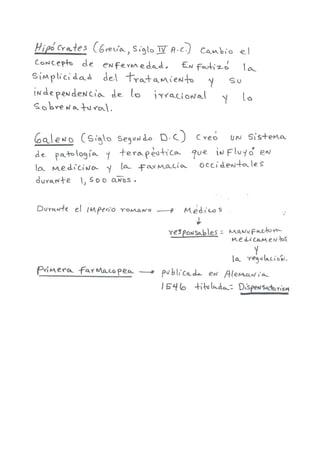 Hipócrates (Grecia, Siglo IV A.C.) Cambio el
concepto de enfermedad. Enfatizó la
simplicidad del tratamiento y su
independencia de lo irracional y lo
sobrenatural.
Galeno (Siglo Segundo D.C) creó un sistema
de patología y terapéutica que influyó en
la medicina y la farmacia occidentales
durante 1,500 años.
Durante el Imperio romano → Médicos
↓
responsables = manufactura
medicamentos
y
la regulación.
Primera farmacopea → publicada en Alemania
1546 titulada =